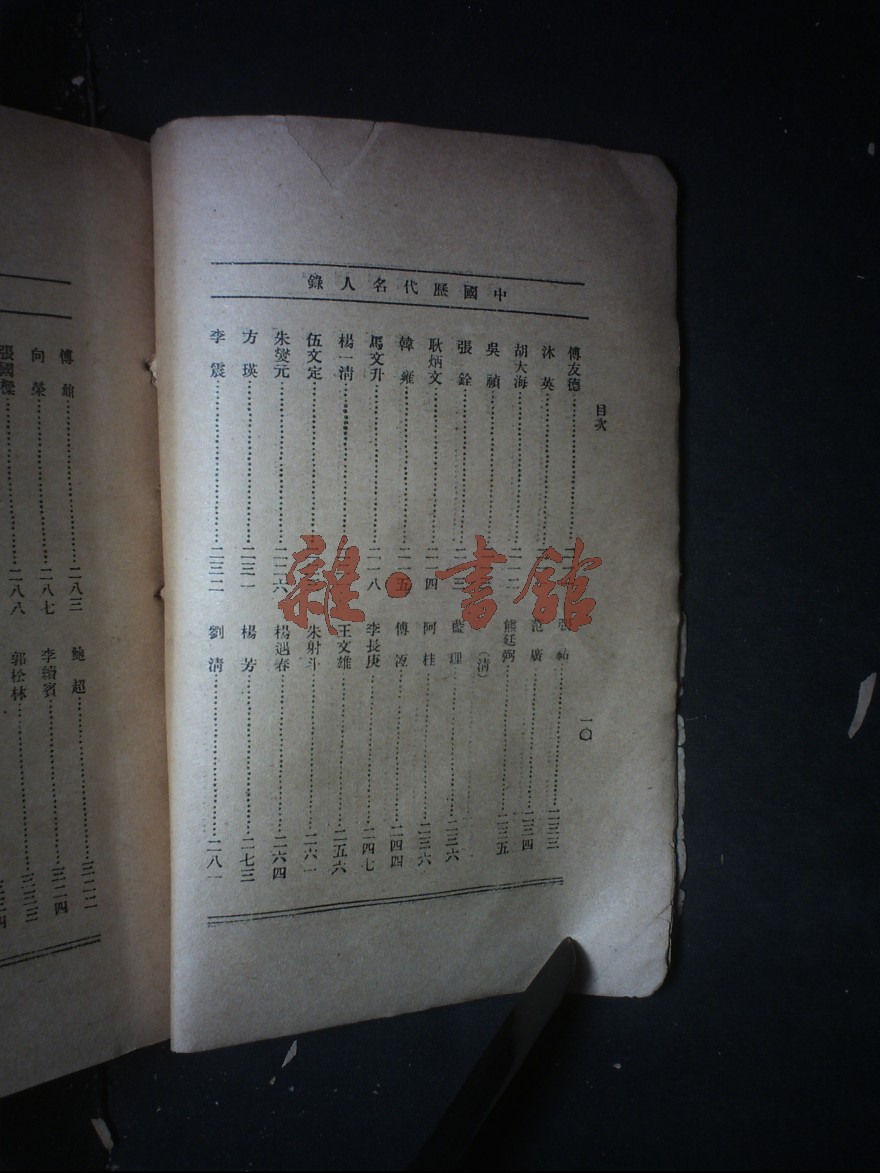 中國歷代名人錄
目次
一〇
傅友德
沐英
胡大海
吳禎
張銓
耿炳文
韓雍
馬文升
楊一清
伍文定
朱燮元
方瑛……二三一
李震……二三二
張祐……二三三
范廣……二三四
熊廷弼……二三五
(清)
藍理……二三六
阿桂……二三六
傅
李長庚……二四七
王文雄……二五六
朱射斗……二六一
楊遇春……二六四
楊芳……二七三
劉清……二八一
傅鼐……二八三
向榮……二八七
張國樑……二八八
鮑超……三二二
李續賓……三二四
郭松林
雜·書館